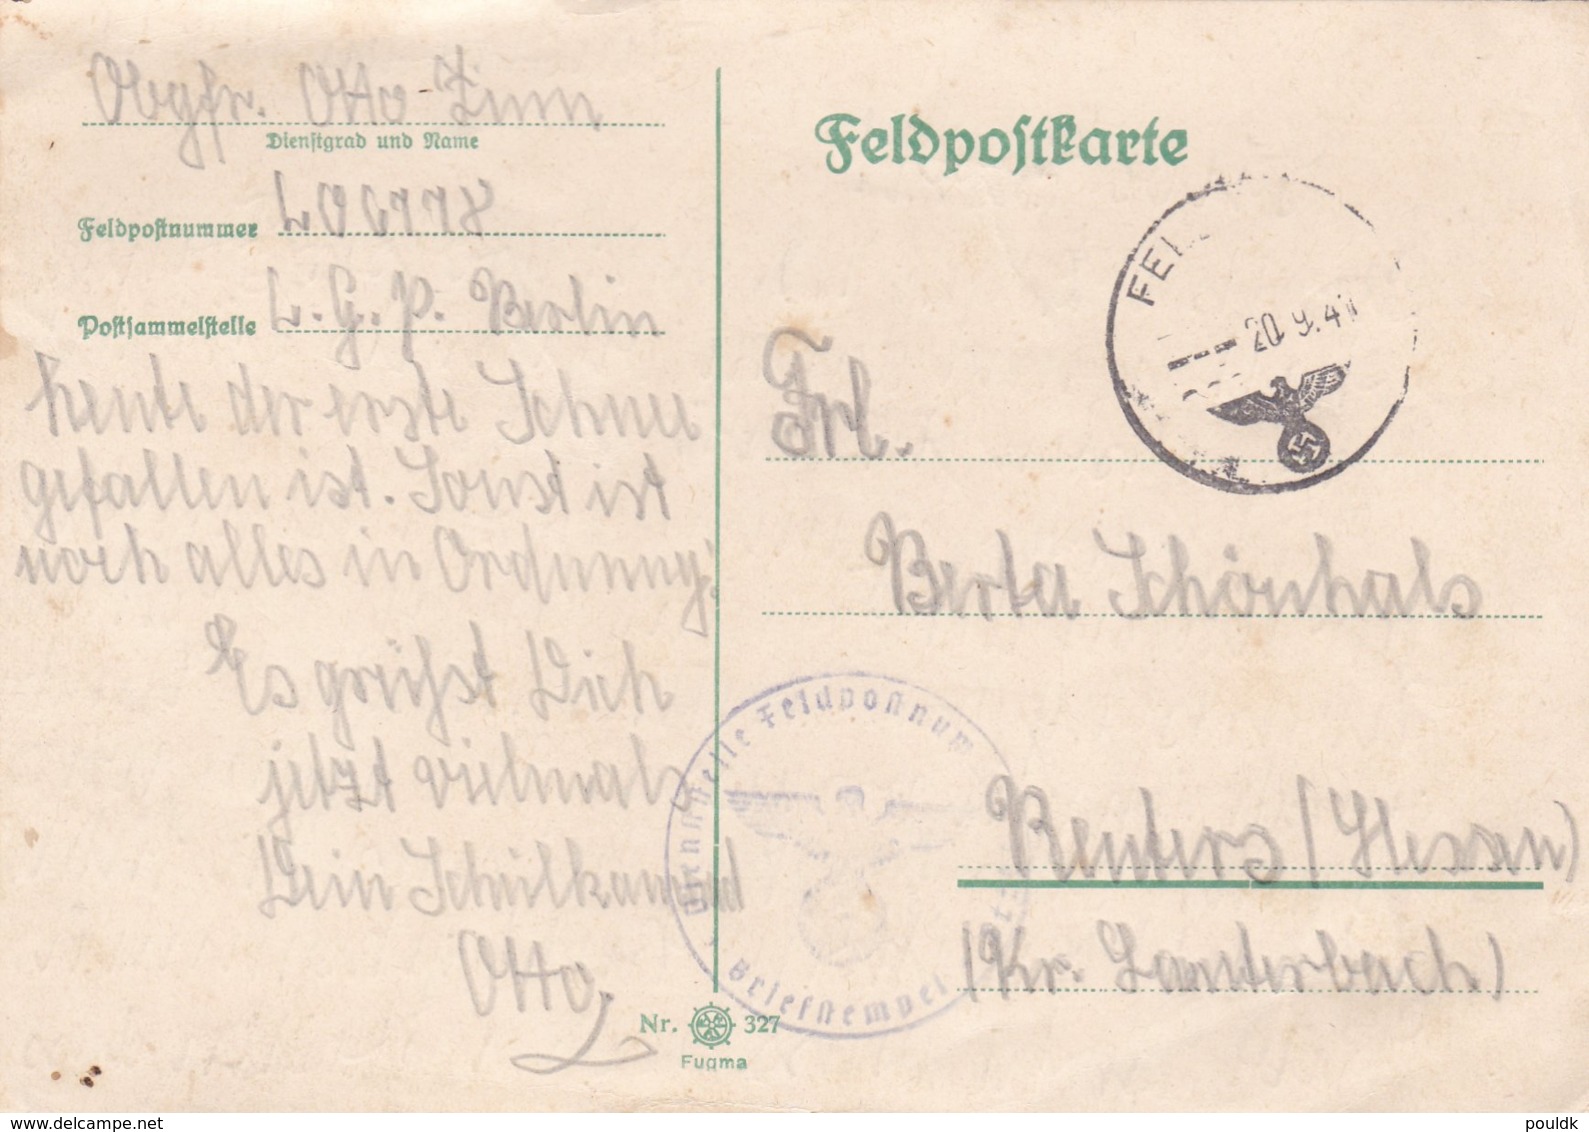 Obgfr. Otto Zinn
Dienstgrad und Name
Feldpostnummer L 00778
Postsammelstelle L.G.P. Berlin
heute der erste Schnee
gefallen ist. Sonst ist
noch alles in Ordnung!
Es grüßt Dich
jetzt vielmals
Dein Schulkamerad
Otto
Nr. 327
Fugma
Feldpostkarte
20.9.41
Frl.
Berta Schönhals
Renters (Hessen)
(Kr. Lauterbach)
Dienststelle Feldpostnum
Briefstempel
www.delcampe.net
pouldk